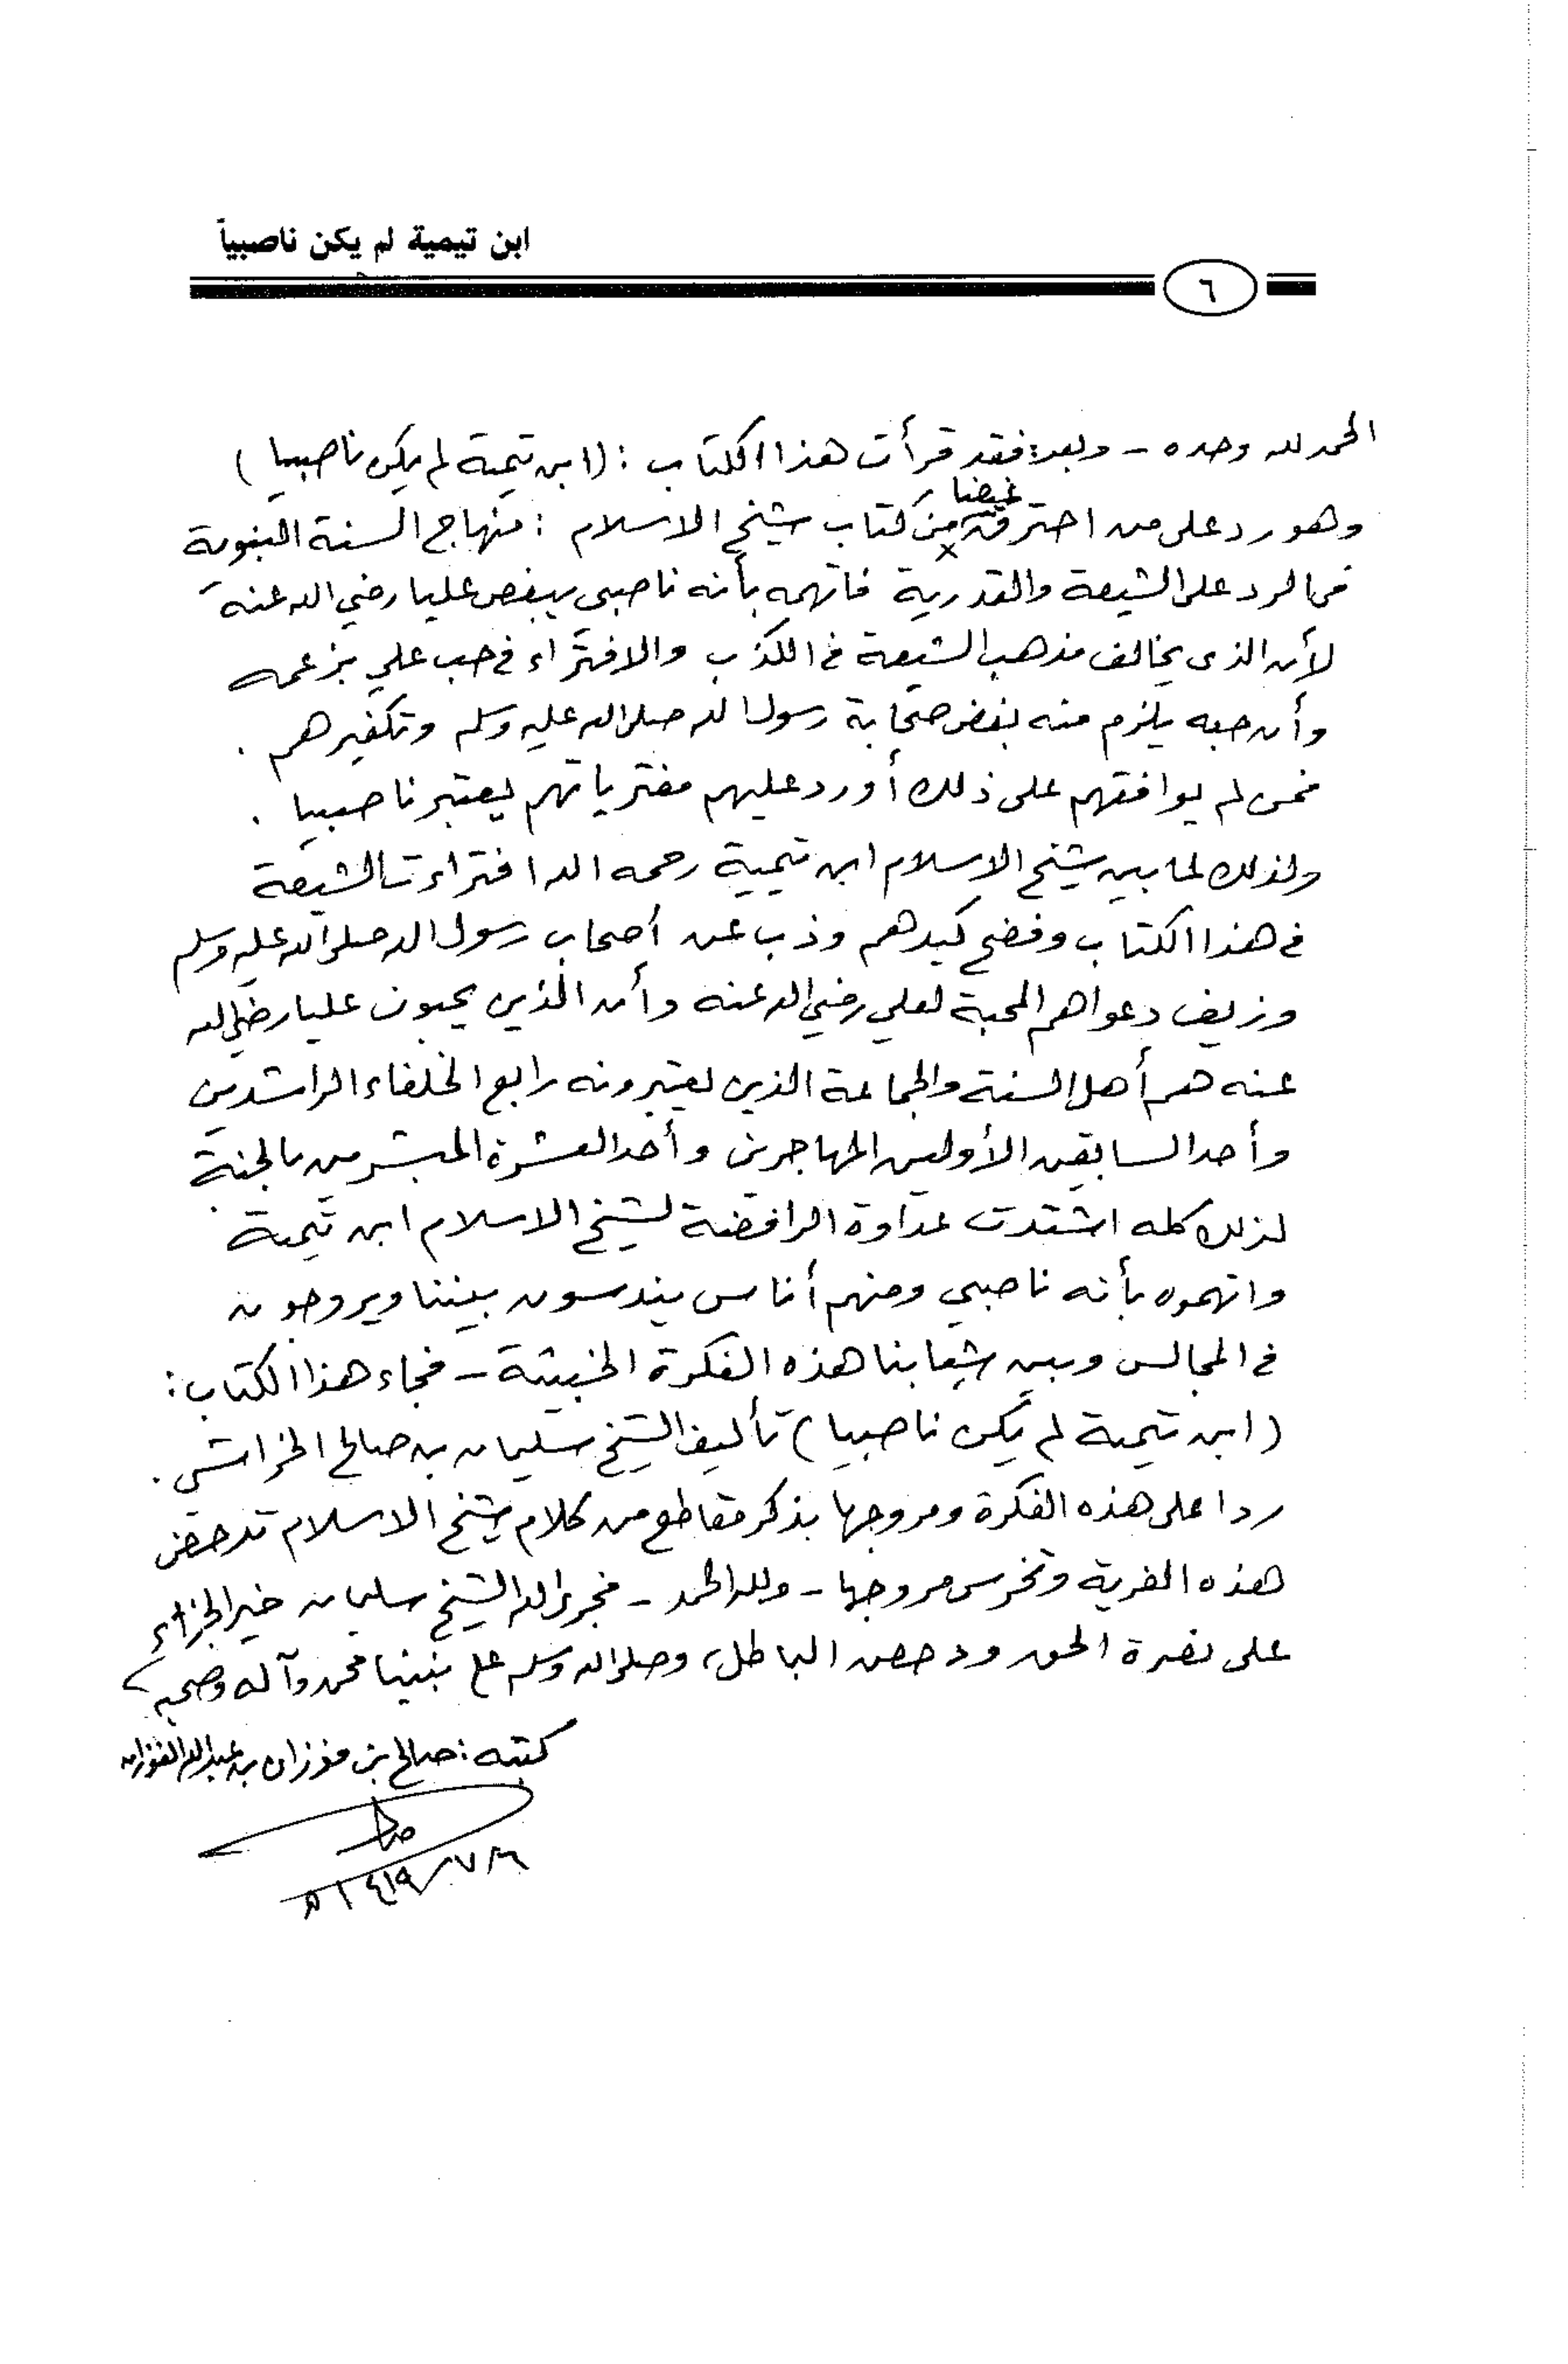 ابن تيمية لم يكن ناصبياً
٦
الحمد لله وحده - وبعد: فقد قرأت هذا الكتاب: (ابن تيمية لم يكن ناصبيا)
غيضا
وهو رد على من احترق من كتاب شيخ الاسلام: منهاج السنة النبوية
في الرد على الشيعة والقدرية فاتهمه بأنه ناصبي يبغض عليا رضي الله عنه
لأن الذي يخالف مذهب الشيعة في الكذب والافتراء في حب علي بزعمه
وأن حبه يلزم منه بغض صحابة رسول الله صلى الله عليه وسلم وتكفيرهم.
فمن لم يوافقهم على ذلك أو رد عليهم مفترياتهم يعتبر ناصبيا.
ولذلك لما بين شيخ الاسلام ابن تيمية رحمه الله افتراءات الشيعة
في هذا الكتاب وفضح كيدهم وذب عن أصحاب رسول الله صلى الله عليه وسلم
وزيف دعواهم المحبة لعلي رضي الله عنه وأن الذين يحبون عليا رضي الله
عنه هم أهل السنة والجماعة الذين يعتبرونه رابع الخلفاء الراشدين
وأحد السابقين الأولين المهاجرين وأحد العشرة المبشرين بالجنة
لذلك كله اشتدت عداوة الرافضة لشيخ الاسلام ابن تيمية
واتهموه بأنه ناصبي ومنهم أناس يندسون بيننا ويروجون
في المجالس وبين شبابنا هذه الفكرة الخبيثة - فجاء هذا الكتاب:
(ابن تيمية لم يكن ناصبيا) تأليف الشيخ سليمان بن صالح الخراشي.
ردا على هذه الفكرة ومروجها بذكر مقاطع من كلام شيخ الاسلام تدحض
هذه الفرية وتخرس مروجها - ولله الحمد - فجزى الله الشيخ سليمان خير الجزاء
على نصرة الحق ودحض الباطل، وصلى الله وسلم على نبينا محمد وآله وصحبه
كتبه: صالح بن فوزان بن عبدالله الفوزان
١٤١٩/٧/٦ هـ